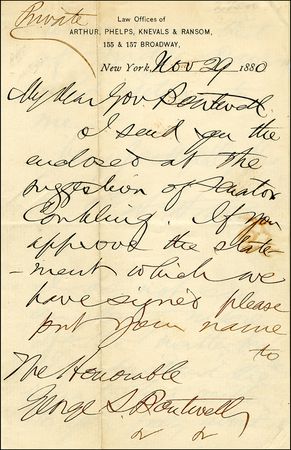 Private
Law Offices of
ARTHUR, PHELPS, KNEVALS & RANSOM,
155 & 157 BROADWAY,
New York, Nov 29 1880
My dear Gov Boutwell.
I send you the
enclosed at the
suggestion of Senator
Conkling. If you
approve the state
-ment which we
have signed please
put your name
to
The Honorable
George S. Boutwell